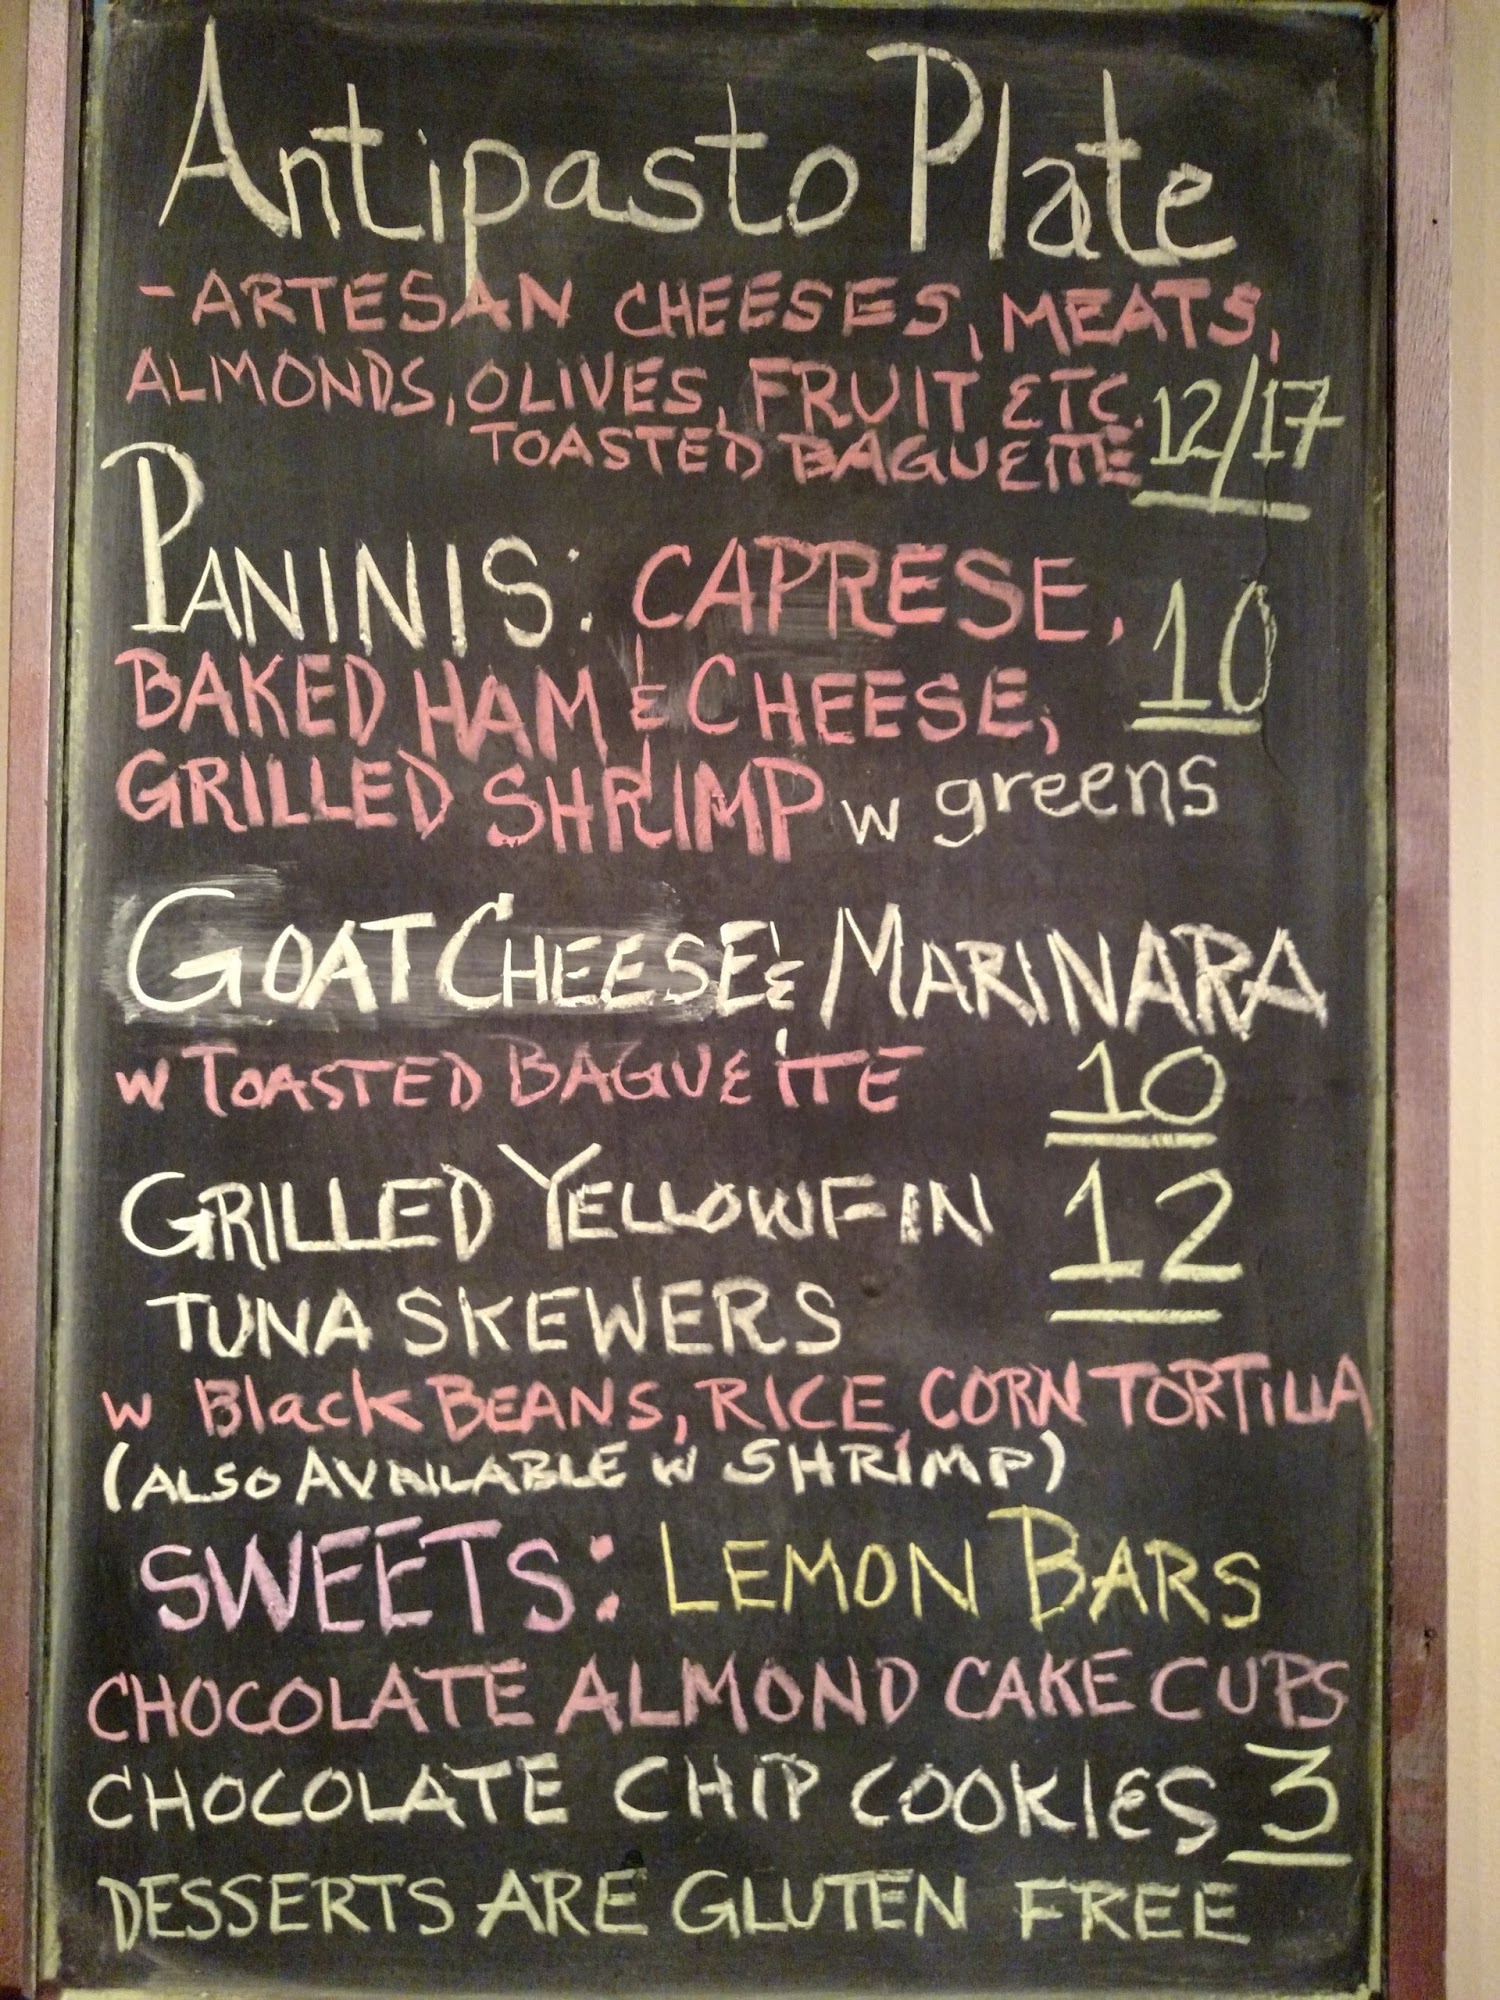 Antipasto Plate
- ARTESAN CHEESES, MEATS,
ALMONDS, OLIVES, FRUIT ETC.
TOASTED BAGUETTE 12/17
PANINIS: CAPRESE, 10
BAKED HAM & CHEESE,
GRILLED SHRIMP w greens
GOAT CHEESE & MARINARA
W TOASTED BAGUETTE 10
GRILLED YELLOWFIN 12
TUNA SKEWERS
W Black BEANS, RICE, CORN TORTILLA
(ALSO AVAILABLE W SHRIMP)
SWEETS: LEMON BARS
CHOCOLATE ALMOND CAKE CUPS
CHOCOLATE CHIP COOKIES 3
DESSERTS ARE GLUTEN FREE